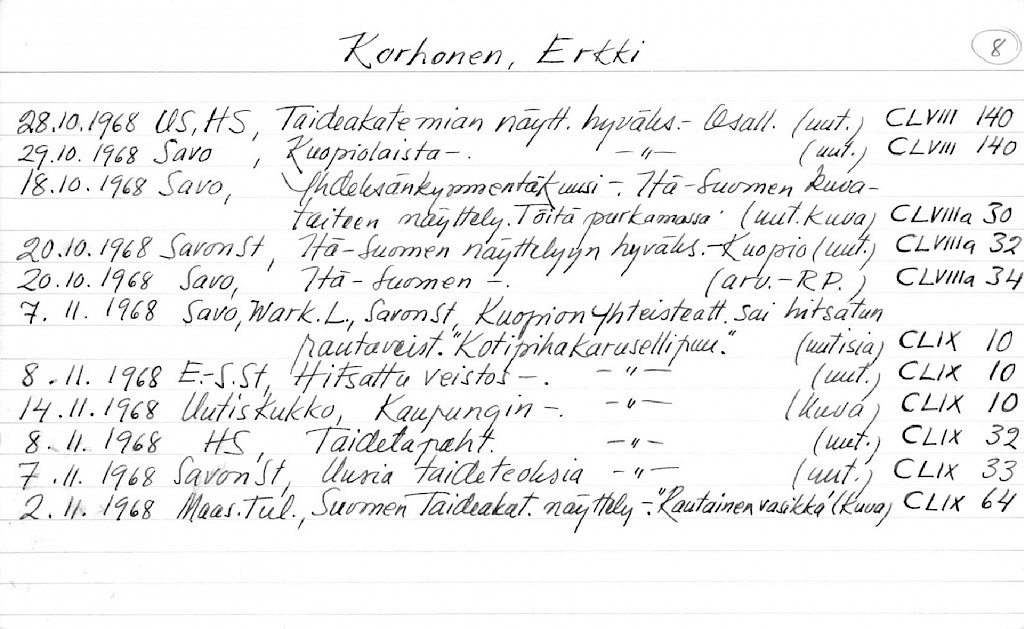 Korhonen, Erkki 8
28.10.1968 US, HS, Taideakatemian näytt. hyväks.- Osall. (uut.) CLVIII 140
29.10.1968 Savo, Kuopiolaista -. -"- (uut.) CLVIII 140
18.10.1968 Savo, Yhdeksänkymmentäkuusi -. Itä-Suomen kuva-
taiteen näyttely. Töitä purkamassa (uut. kuva) CLVIIIa 30
20.10.1968 SavonSt, Itä-Suomen näyttelyyn hyväks.- Kuopio (uut.) CLVIIIa 32
20.10.1968 Savo, Itä-Suomen -. (arv.-R.P.) CLVIIIa 34
7.11.1968 Savo, Wark.L., SavonSt, Kuopion Yhteisteatt. sai hitsatun
rautaveist. "Kotipihakarusellipuu." (uutisia) CLIX 10
8.11.1968 E.-S.St, Hitsattu veistos -. -"- (uut.) CLIX 10
14.11.1968 Uutiskukko, Kaupungin -. -"- (kuva) CLIX 10
8.11.1968 HS, Taidetapaht. -"- (uut.) CLIX 32
7.11.1968 SavonSt, Uusia taideteoksia -"- (uut.) CLIX 33
2.11.1968 Maas.Tul., Suomen Taideakat. näyttely -. "Rautainen vasikka" (kuva) CLIX 64